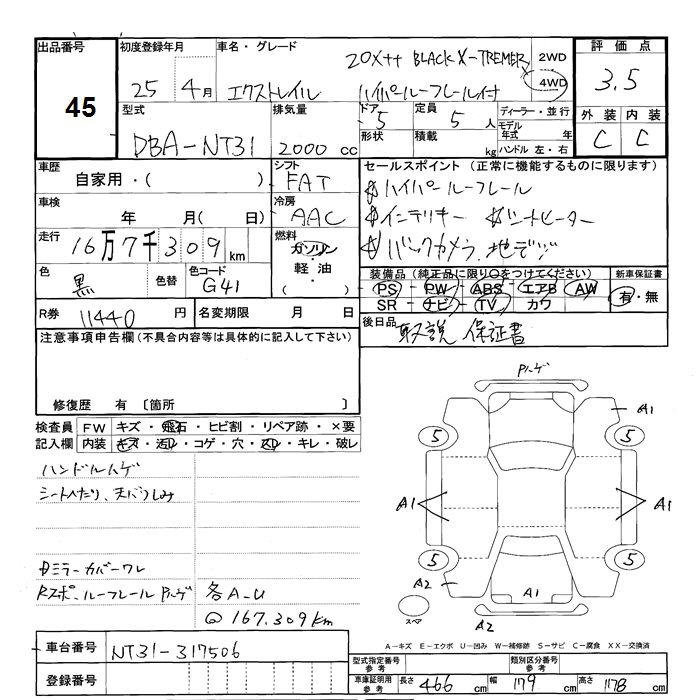 出品番号
45
初度登録年月
25年 4月
車名・グレード
20X++ BLACK X-TREMER
エクストレイル ハイパールーフレール付
2WD
4WD
評価点
3.5
外装 内装
C C
型式
DBA-NT31
排気量
2000 cc
ドア
5
定員
5 人
形状
積載
kg
ディーラー・並行
モデル年式 年
ハンドル 左・右
車歴
自家用・( )
シフト
FAT
車検
年 月( 日)
冷房
AAC
走行
16万7千309 km
燃料
ガソリン
・
軽油
・
( )
色
黒
色替
色コード
G41
R券 11440 円
名変期限 月 日
セールスポイント (正常に機能するものに限ります)
ハイパールーフレール
インテリキー シートヒーター
バックカメラ、地デジ
装備品 (純正品に限り○をつけてください)
新車保証書
PS・PW・ABS・エアB・AW
SR・ナビ・TV・カワ
有・無
後日品 取説 保証書
注意事項申告欄(不具合内容等は具体的に記入して下さい)
修復歴 有 〔箇所 〕
検査員記入欄
FW キズ・飛石・ヒビ割・リペア跡・×要
内装 キズ・汚レ・コゲ・穴・スレ・キレ・破レ
ハンドルハゲ
シートへたり、天バリしみ
ミラーカバーワレ
Rスポ、ルーフレールPハゲ 各A-U
@ 167,309km
Pハゲ
A1
5
5
A1
A1
5
5
A2
A1
A2
スペア
A-キズ E-エクボ U-凹み W-補修跡 S-サビ C-腐食 XX-交換済
車台番号
NT31-317506
登録番号
型式指定番号 参考
類別区分番号 参考
車庫証明用 参考
長さ 466 cm
幅 179 cm
高さ 178 cm